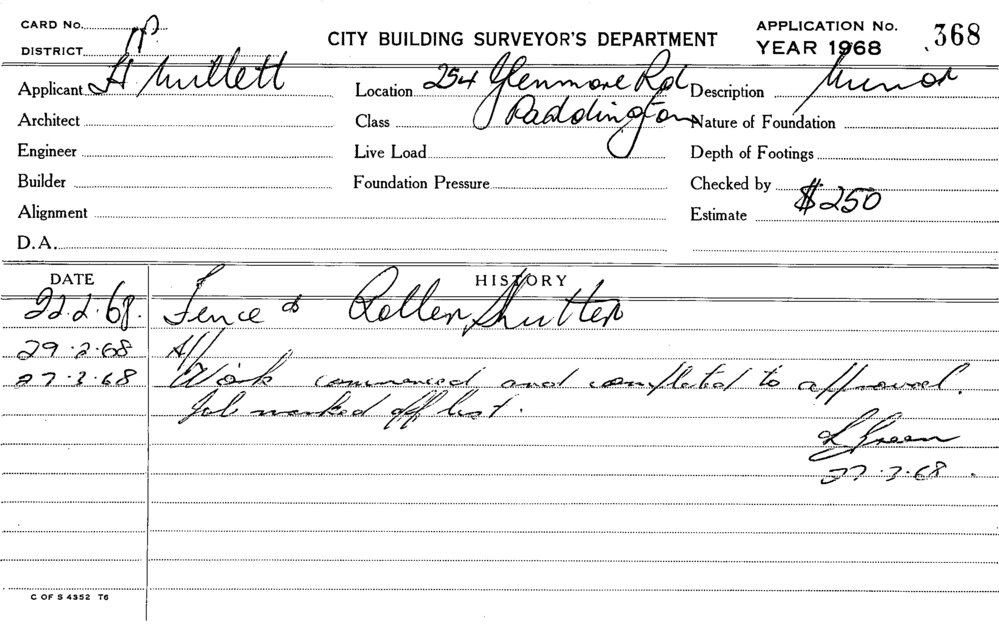 CARD No.
DISTRICT P
CITY BUILDING SURVEYOR'S DEPARTMENT
APPLICATION No. 368
YEAR 1968
Applicant H Millett
Location 254 Glenmore Rd
Paddington
Description Minor
Architect
Class
Nature of Foundation
Engineer
Live Load
Depth of Footings
Builder
Foundation Pressure
Checked by
Alignment
Estimate $250
D.A.
DATE HISTORY
22.2.68. Fence & Roller Shutter
29.2.68 A/
27.3.68 Work commenced and completed to approval.
Job marked off list.
L Green
27.3.68.
C OF S 4352 T6